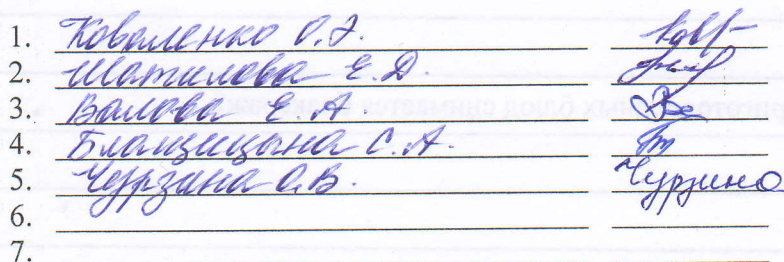 1. Коваленко О.Э.
2. Шатилова Е.Д.
3. Валова Е.А
4. Бланщицына С.А.
5. Чурзина О.В. Чурзина
6.
7.